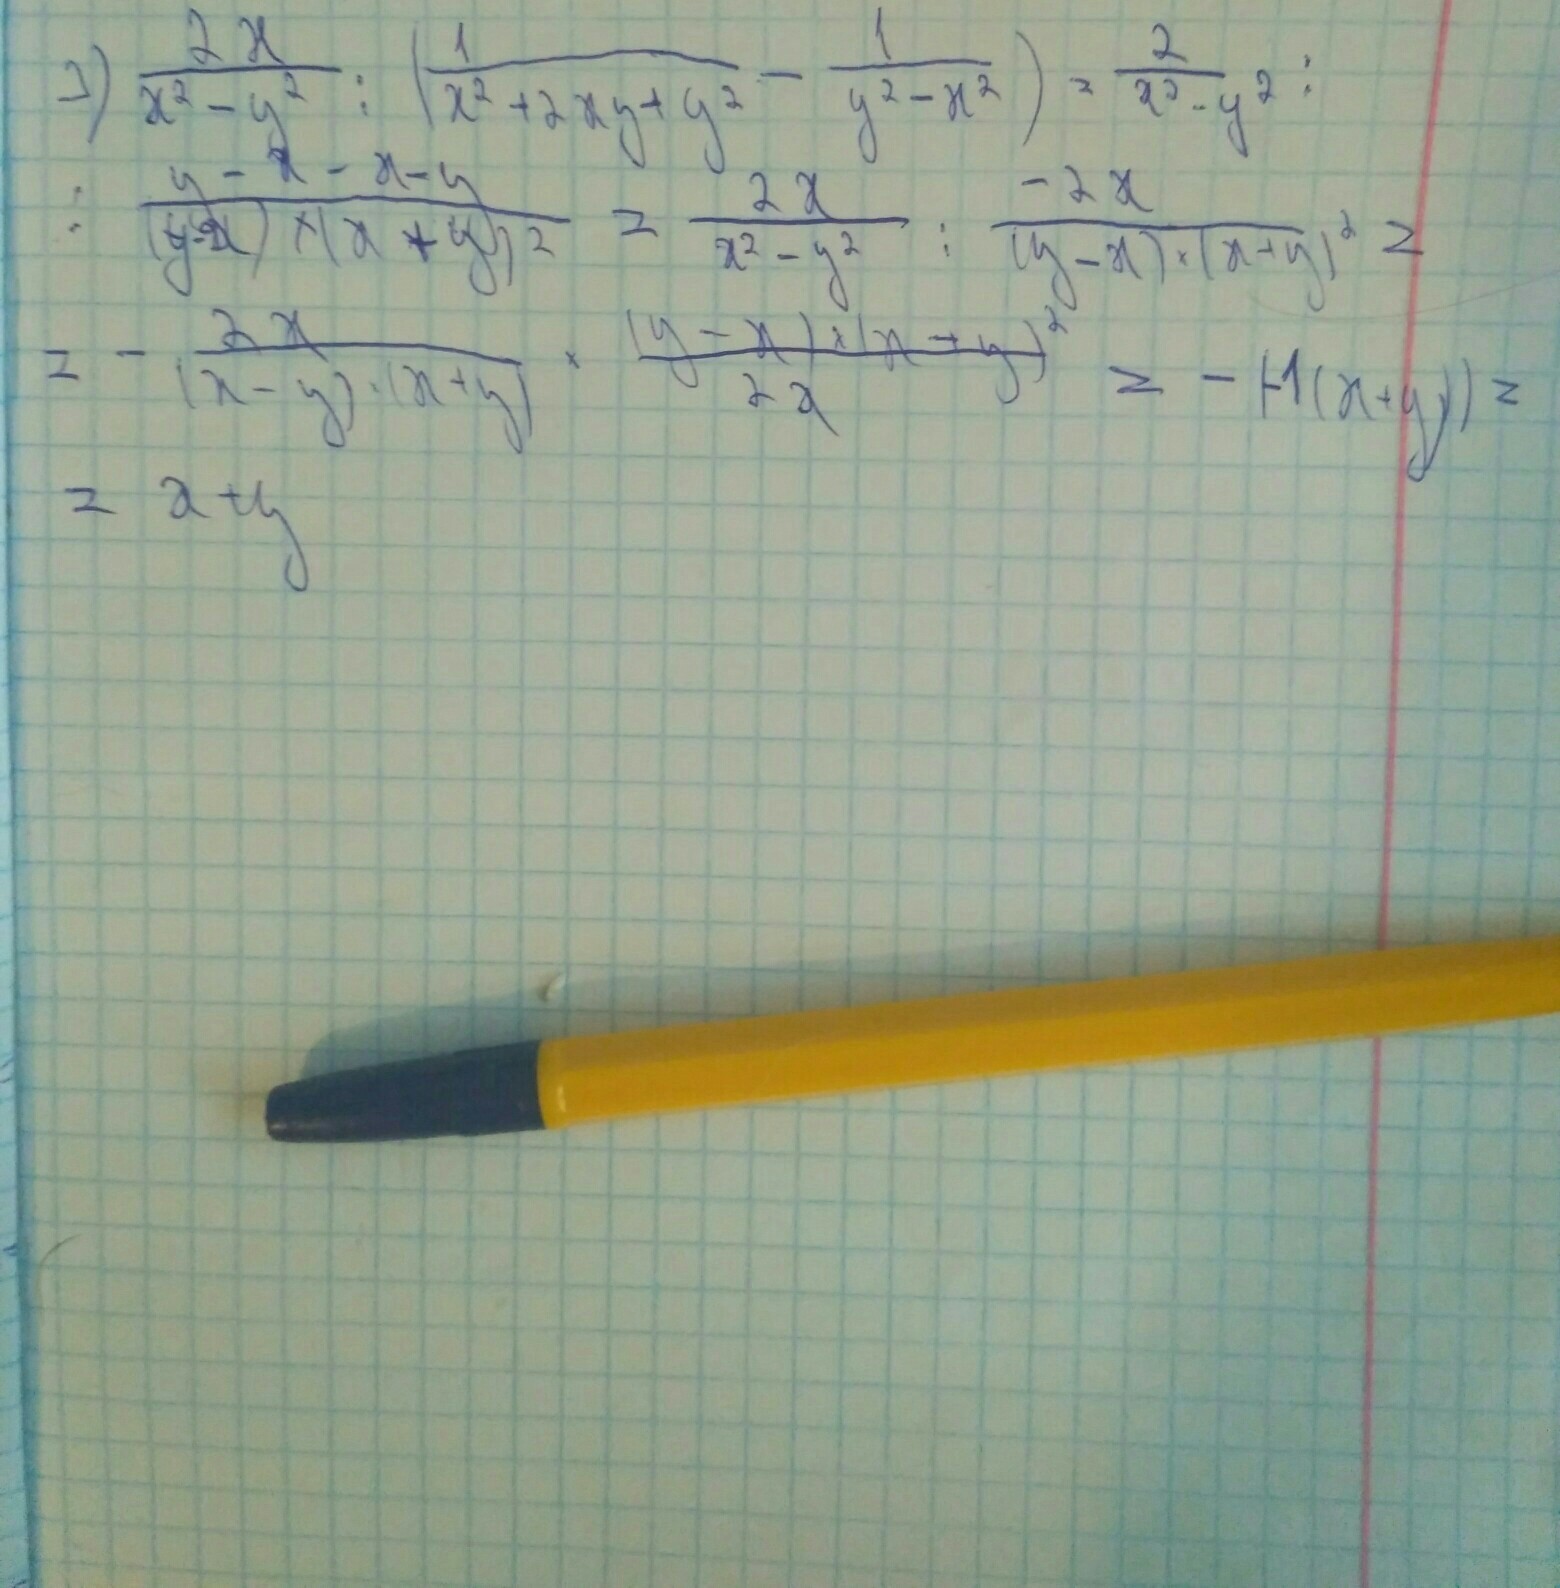 3) 2x / (x² - y²) : (1 / (x² + 2xy + y²) - 1 / (y² - x²)) = 2 / (x² - y²) :
: (y - x - x - y) / ((y - x) × (x + y)²) = 2x / (x² - y²) : -2x / ((y - x) · (x + y)²) =
= - 2x / ((x - y) · (x + y)) × ((y - x) × (x + y)²) / 2x = - (-1(x + y)) =
= x + y